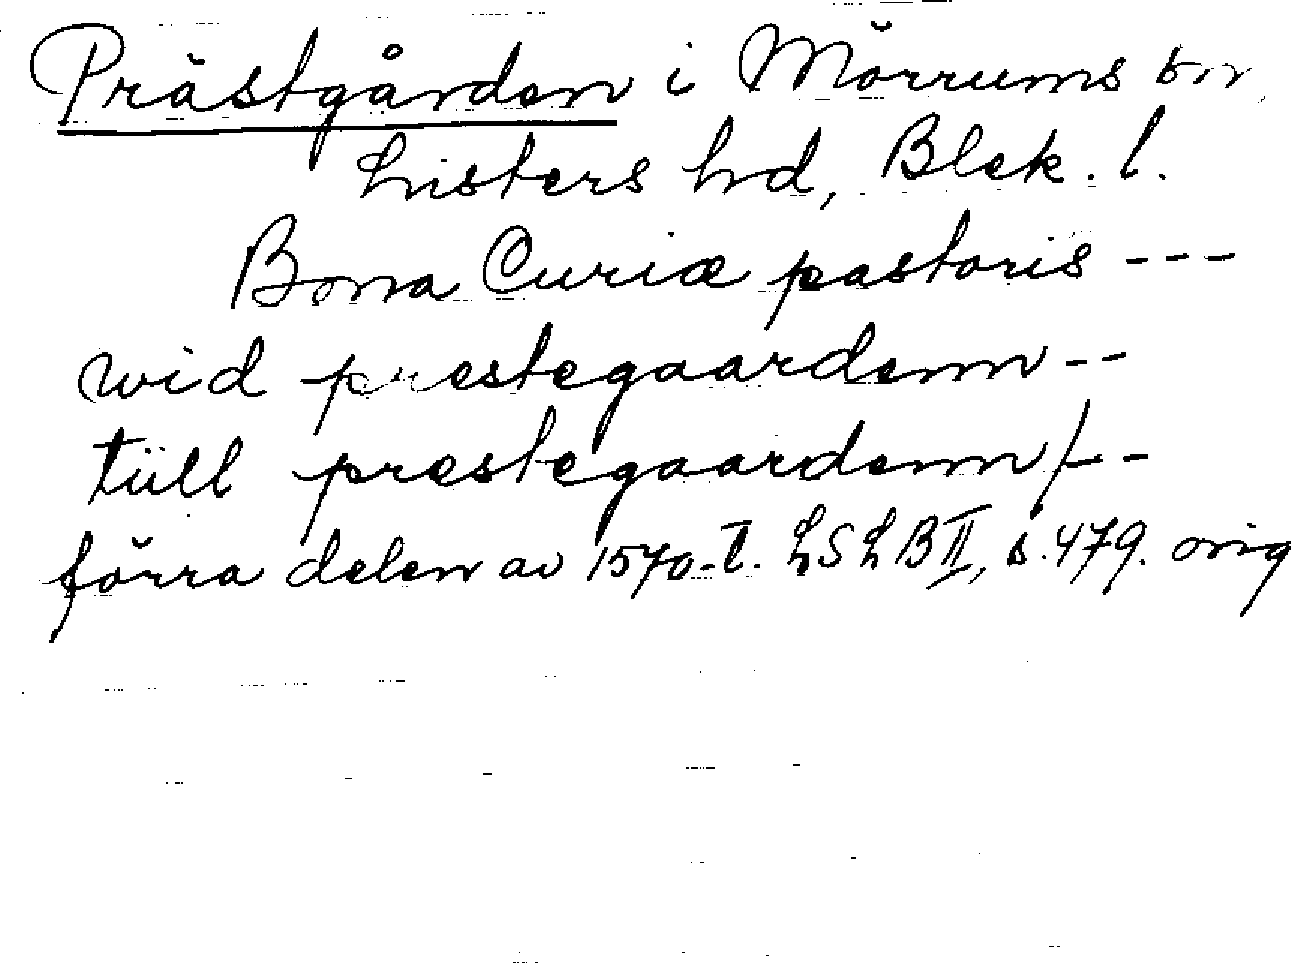 Prästgården i Mörrums sn
Listers hd, Blek. l.
Bona Curiæ pastoris ---
wid prestegaardenn --
tüll prestegaardenn/--
förra delen av 1570-t. LSLB II, s. 479. orig